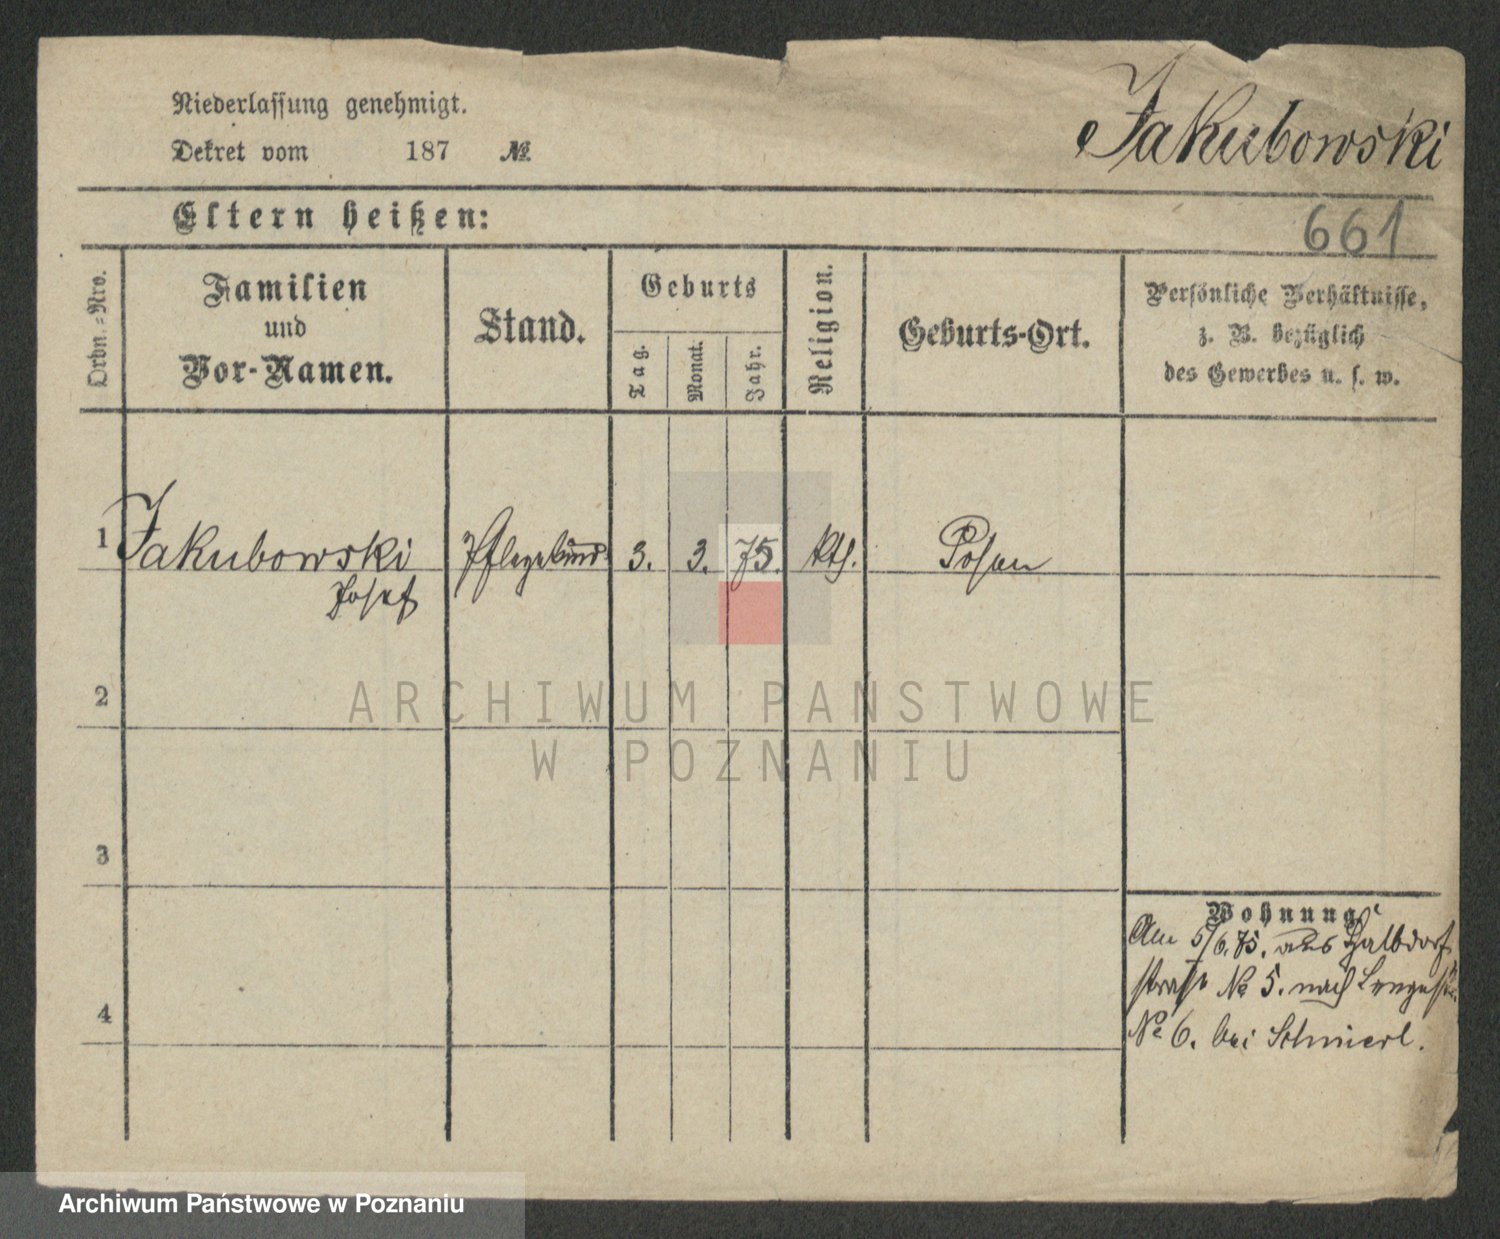 Niederlassung genehmigt.
Dekret vom 187 №
Jakubowski
Eltern heißen:
661
Ordn.-Nro.
Familien
und
Vor-Namen.
Stand.
Geburts
Tag.
Monat.
Jahr.
Religion.
Geburts-Ort.
Persönliche Verhältnisse,
z. B. bezüglich
des Gewerbes u. s. w.
1 Jakubowski Pflegekind 3. 3. 75. kth. Posen
Josef
2
3
4
Wohnung
Am 5/6.75. aus Halbdorf
straße № 5. nach Langestr.
№ 6. bei
ARCHIWUM PAŃSTWOWE
W POZNANIU
Archiwum Państwowe w Poznaniu